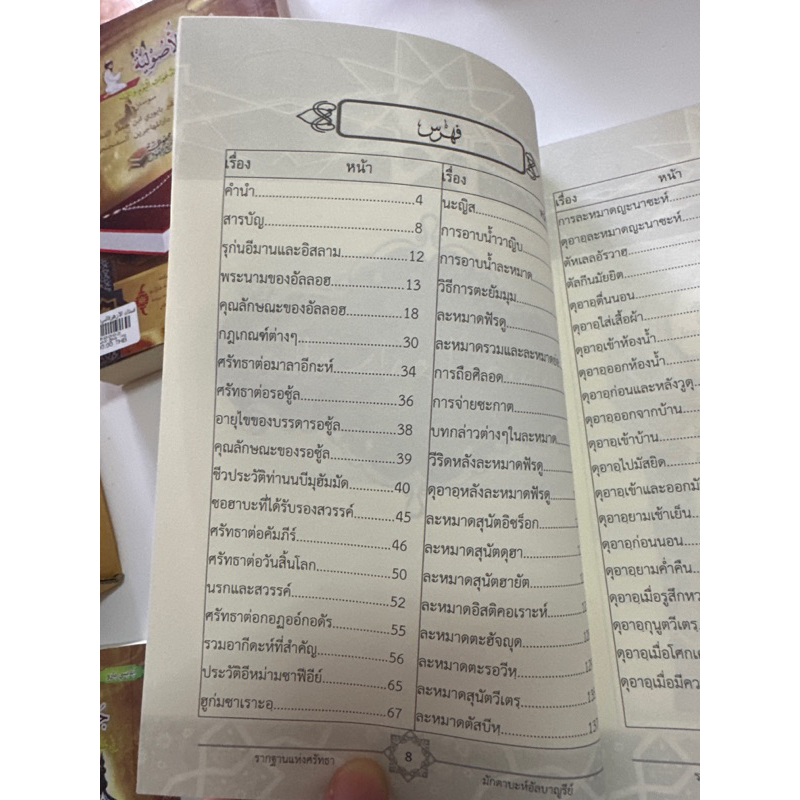 الأصولية
فهرس
เรื่อง หน้า
คำนำ 4
สารบัญ 8
รุก่นอีมานและอิสลาม 12
พระนามของอัลลอฮ 13
คุณลักษณะของอัลลอฮ 18
กฎเกณฑ์ต่างๆ 30
ศรัทธาต่อมาลาอีกะห์ 34
ศรัทธาต่อรอซู้ล 36
อายุไขของบรรดารอซู้ล 38
คุณลักษณะของรอซู้ล 39
ชีวประวัติท่านนบีมุฮัมมัด 40
ซอฮาบะที่ได้รับรองสวรรค์ 45
ศรัทธาต่อคัมภีร์ 46
ศรัทธาต่อวันสิ้นโลก 50
นรกและสวรรค์ 52
ศรัทธาต่อกอฏออ์กอดัร 55
รวมอากีดะห์ที่สำคัญ 56
ประวัติอีหม่ามชาฟีอีย์ 65
ฮูก่มซาเราะอฺ 67
เรื่อง
นะญิส
การอาบน้ำวาญิบ
การอาบน้ำละหมาด
วิธีการตะยัมมุม
ละหมาดฟัรดู
ละหมาดรวมและละหมาด
การถือศิลอด
การจ่ายซะกาต
บทกล่าวต่างๆในละหมาด
วีริดหลังละหมาดฟัรดู
ดุอาอฺหลังละหมาดฟัรดู
ละหมาดสุนัตอิชร็อก
ละหมาดสุนัตดุฮา
ละหมาดสุนัตฮายัต
ละหมาดอิสติคอเราะห์
ละหมาดตะฮัจญุด
ละหมาดตะรอวีหฺ
ละหมาดสุนัตวีเตรฺ
ละหมาดตัสบีหฺ
เรื่อง หน้า
การละหมาดญะนาซะห์
ดุอาอฺละหมาดญะนาซะห์
ตัหเลลอัรวาฮฺ
ตัลกีนมัยยิต
ดุอาอฺตื่นนอน
ดุอาอฺใส่เสื้อผ้า
ดุอาอฺเข้าห้องน้ำ
ดุอาอฺออกห้องน้ำ
ดุอาอฺก่อนและหลังวูดุ
ดุอาอฺออกจากบ้าน
ดุอาอฺเข้าบ้าน
ดุอาอฺไปมัสยิด
ดุอาอฺเข้าและออกมั
ดุอาอฺยามเช้าเย็น
ดุอาอฺก่อนนอน
ดุอาอฺยามค่ำคืน
ดุอาอฺเมื่อรู้สึกหว
ดุอาอฺกุนูตวีเตรฺ
ดุอาอฺเมื่อโศกเ
ดุอาอฺเมื่อมีคว
รากฐานแห่งศรัทธา 8 มักตาบะห์อัลบาญูรีย์